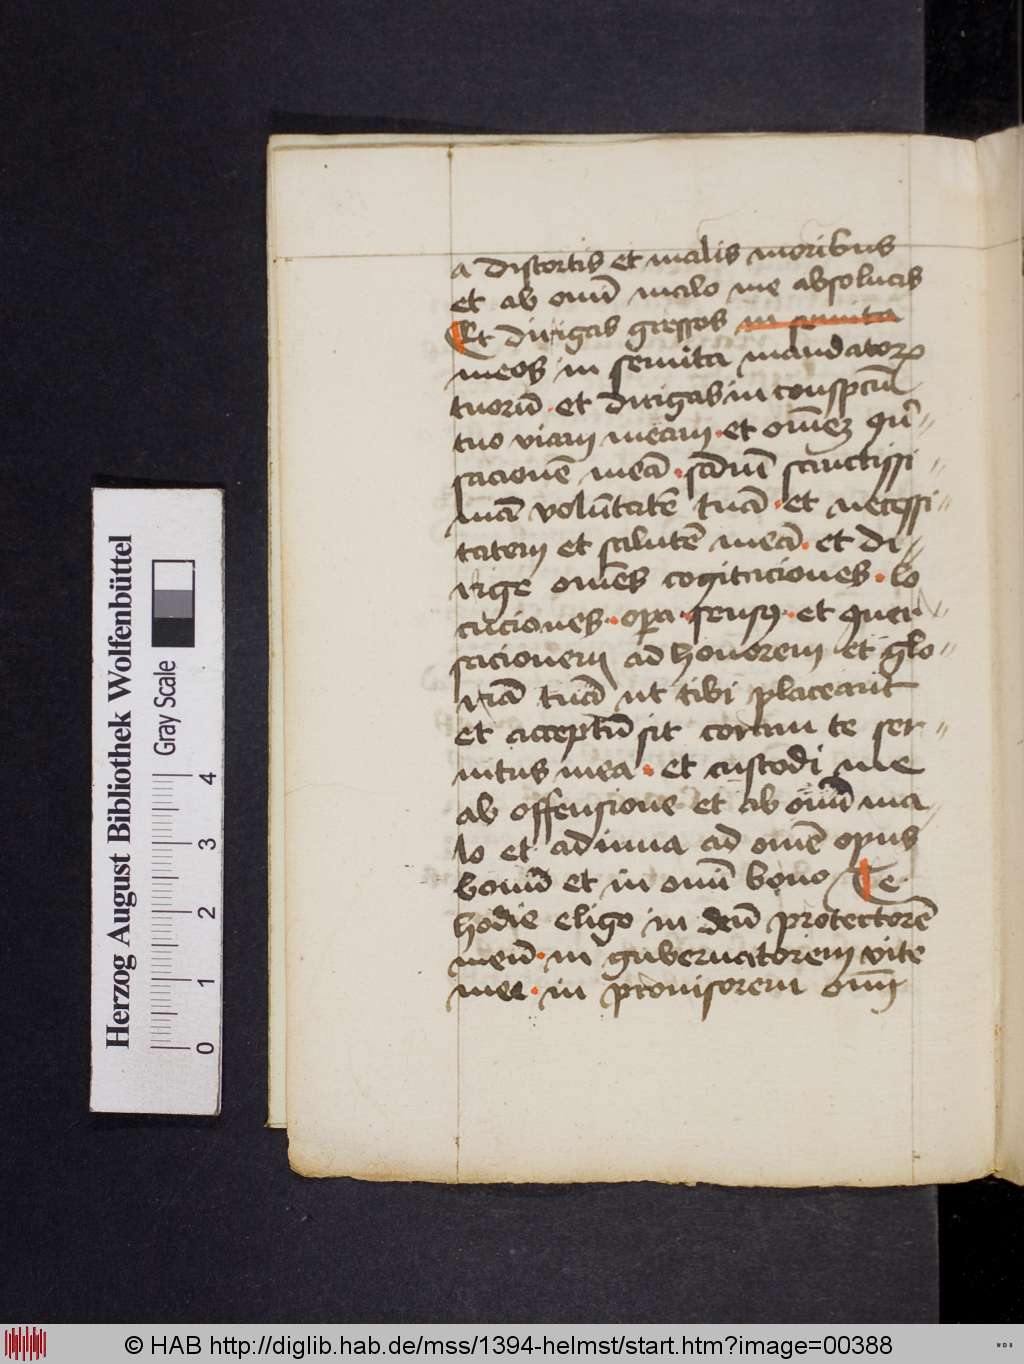 a distortis et malis moribus
et ab om̄i malo me absoluas
Et dirigas gressos in semita
meos in semita mandatorꝝ
tuorū · et dirigas in conspctū
tuo viam meam · et om̄eꝫ ꝯũ〃
sacionē meā · scdm̄ sanctissi〃
mā volūtatē tuā · et necessi〃
tatem et salutē meā · et di〃
rige om̄es cogitaciones · lo
cuciones · oꝑa · sensꝰ · et ꝯuer〃
sacionem ad honorem et glo〃
riā tuā ut tibi placeant
et acceptū sit coram te ser〃
uitus mea · et custodi me
ab offensione et ab om̄i ma〃
lo et adiuua ad om̄e opus
bonū et in om̄i bono Te
hodie eligo in deū protectorē
meū · in gubernatorem vite
mee · in prouisorem om̄i
Herzog August Bibliothek Wolfenbüttel
Gray Scale
0 1 2 3 4
© HAB http://diglib.hab.de/mss/1394-helmst/start.htm?image=00388